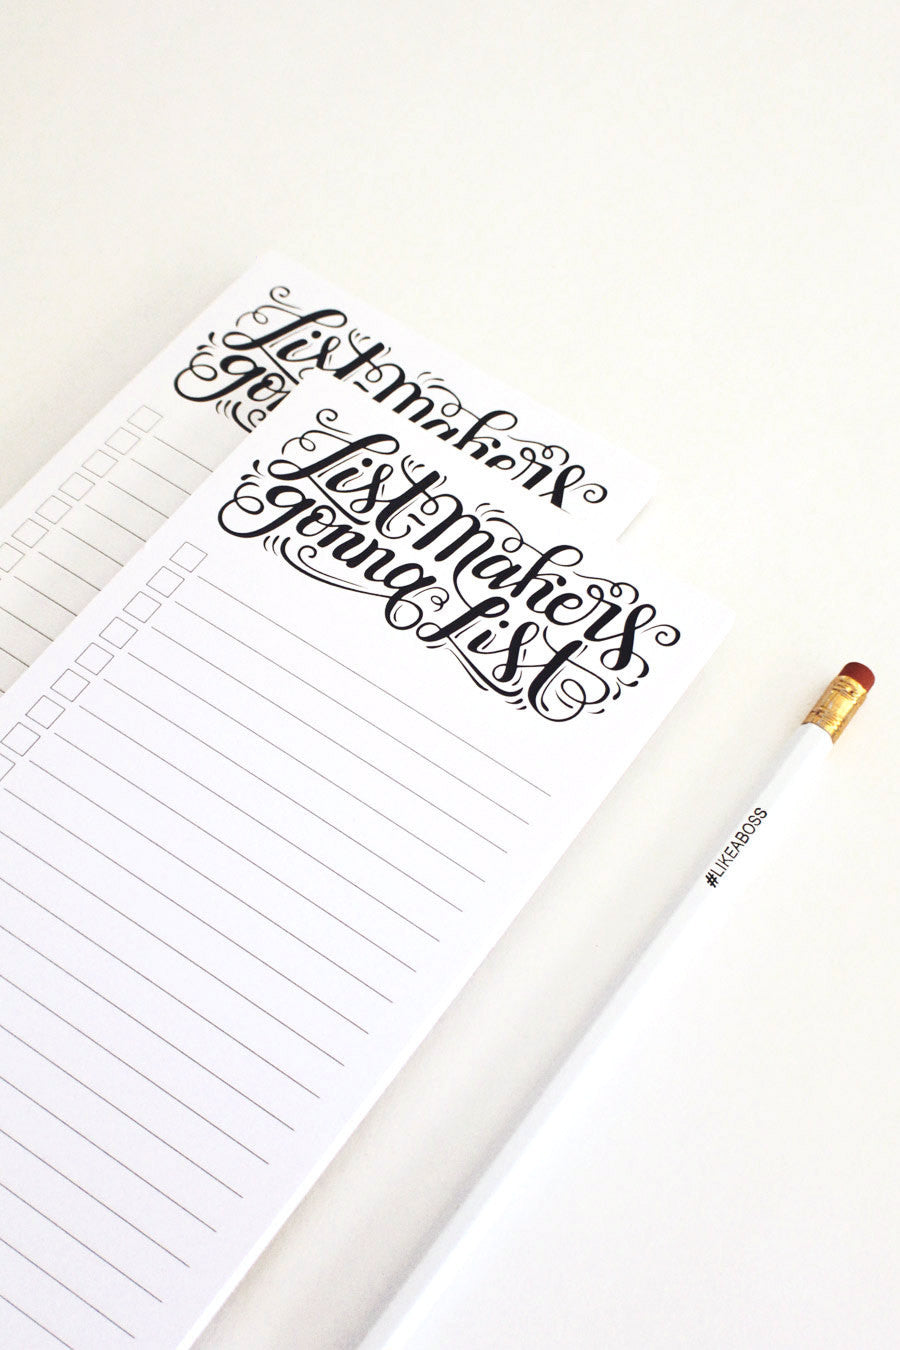 List-makers
gon
List-makers
gonna List
#LIKEABOSS